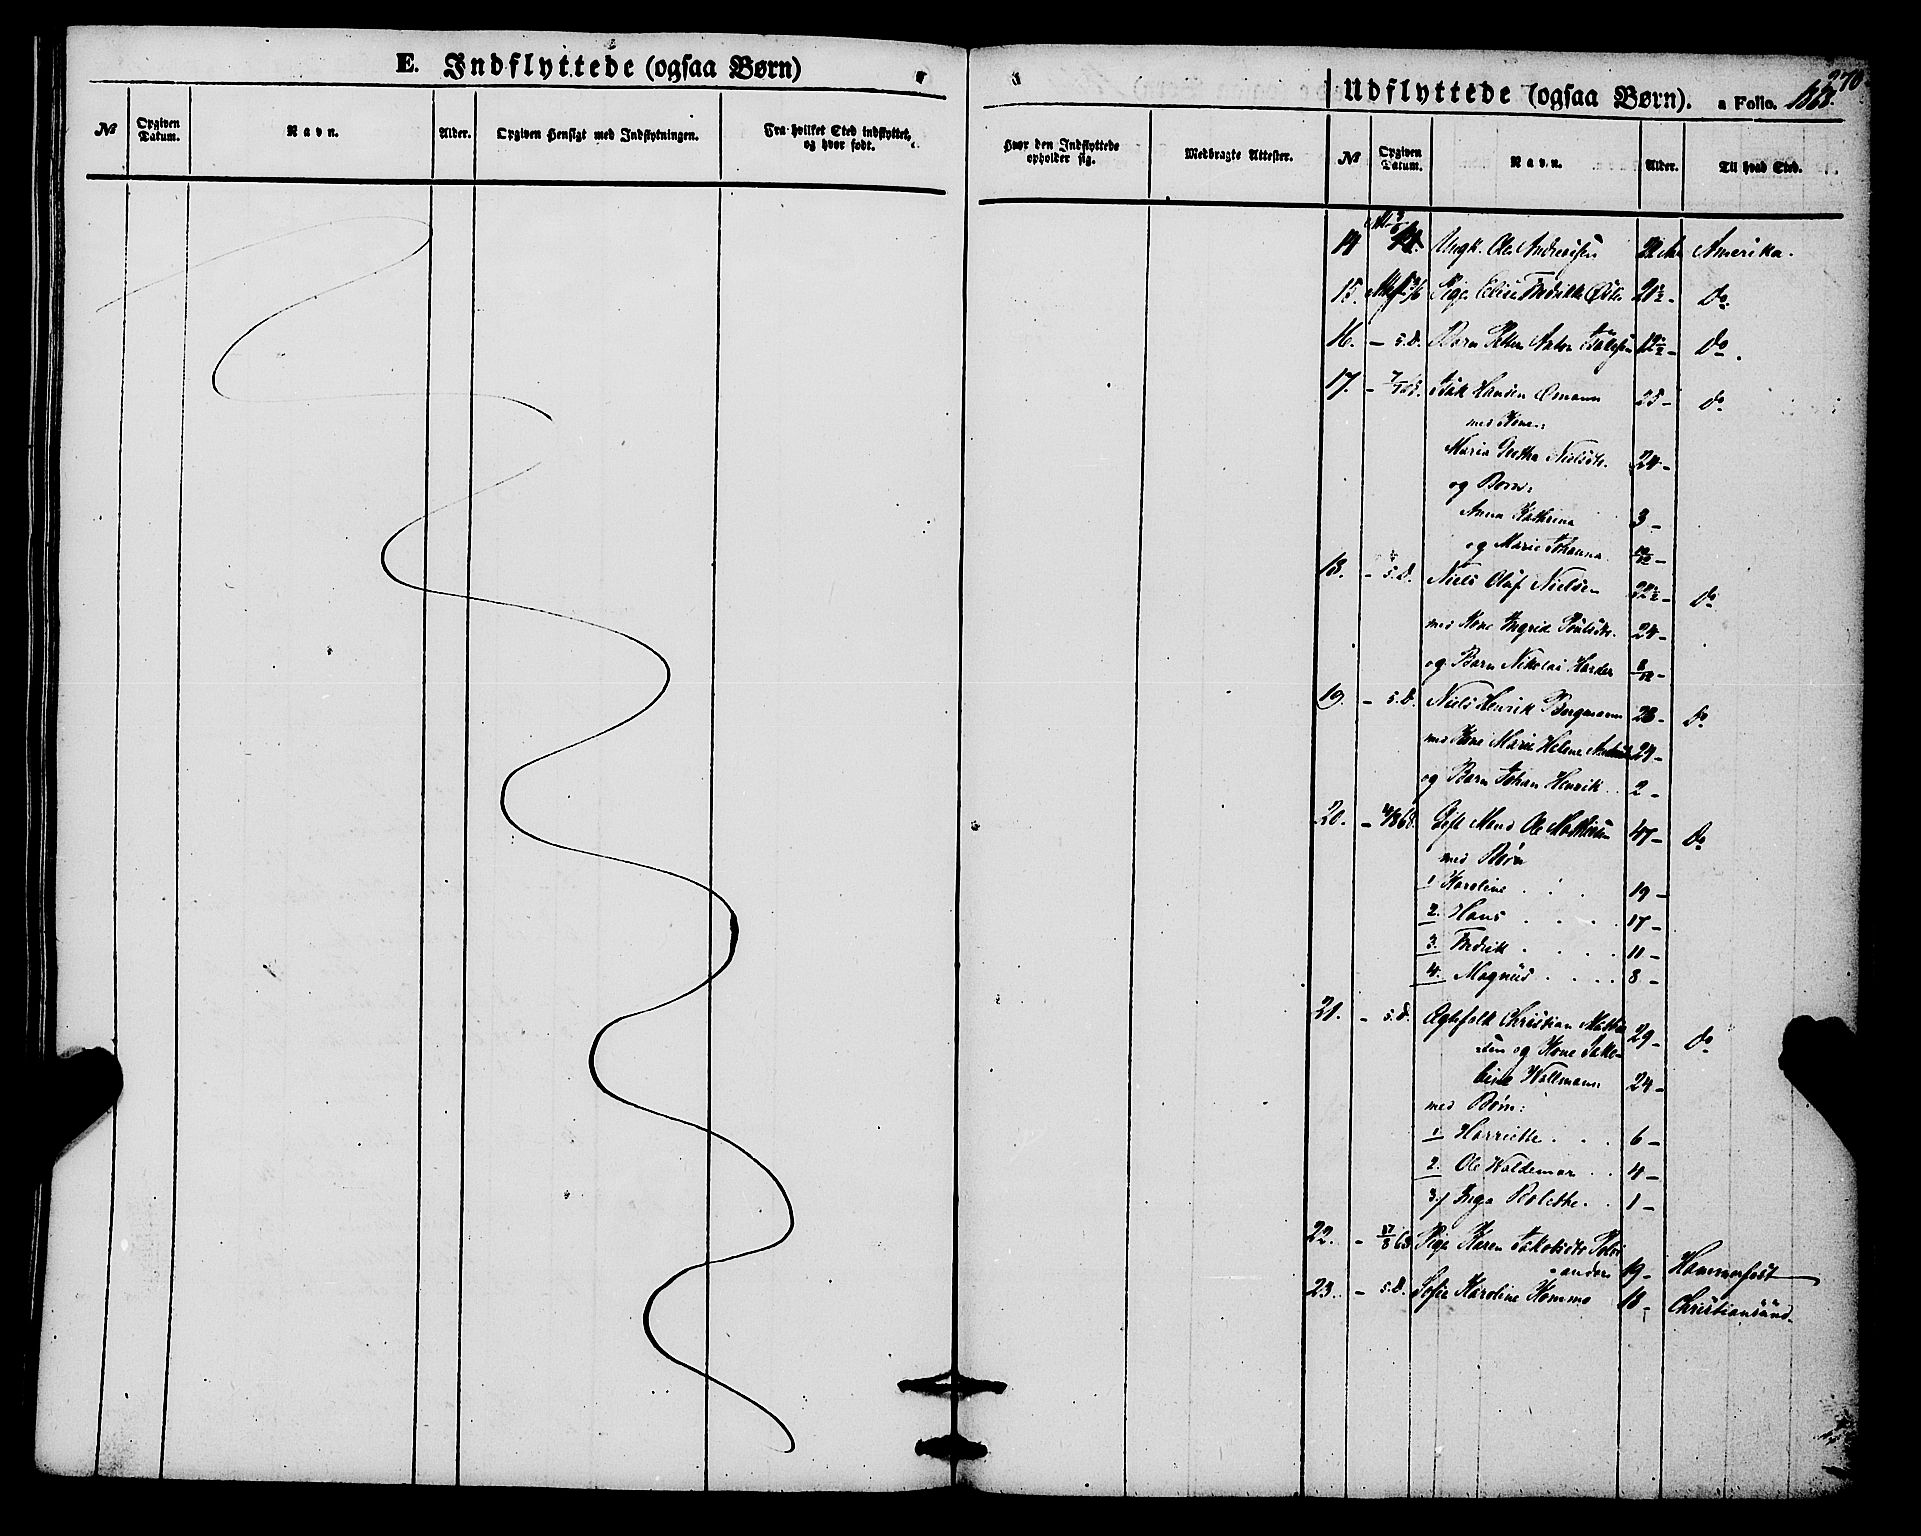 E. Indflyttede (ogsaa Børn)
№
Opgiven Datum.
Navn.
Alder.
Opgiven Hensigt med Indflytningen.
Fra hvilket Sted indflyttet, og hvor født.
Udflyttede (ogsaa Børn). a Folio. 270
Hvor den Indflyttede opholder sig.
Medbragte Attester.
№
Opgiven Datum.
Navn.
Alder.
Til hvad Sted.
14 Ungk. Ole Andreasen Amerika.
15. Pige Elise Fredrikke 21½ - Do.
16. - s.D. Barn Petter Anton - Do.
17. - Isak Hansen Ømann 25 - Do
med Kone:
Maria Gretha Nielsdtr. 24 -
og Børn:
Anna Kathrina 3 -
og Marie Johanna 10/12 -
18. - s.D. Niels Oluf Nielsen - Do
med Kone Ingrid Poulsdtr. 24 -
og Barn Nikolai Harder 8/12 -
19. - s.D. Niels Henrik Bergmann 28 - Do
med Kone Marie Helene 24 -
og Barn Johan Henrik 2 -
20. - Gift Mand Ole Mathisen 47 - Do
med Børn
1 Karoline . . 19 -
2. Hans . . . 17 -
3. Fredrik . . . 11 -
4. Magnus . . . . 8 -
21. - s.D. Ægtefolk Christian Mathi-
sen og Kone Jako- 29 - Do
bine Wallmann 24 -
med Børn:
1. Harriette . . . 6 -
2. Ole Waldemar . . 4 -
3. Inga Bolethe . . 1 -
22. - 17/8 68 Pige Karen Jakobsdtr
19 - Hammerfest
23. - s.D. Sofie Karoline Homme 18 - Christiansund.